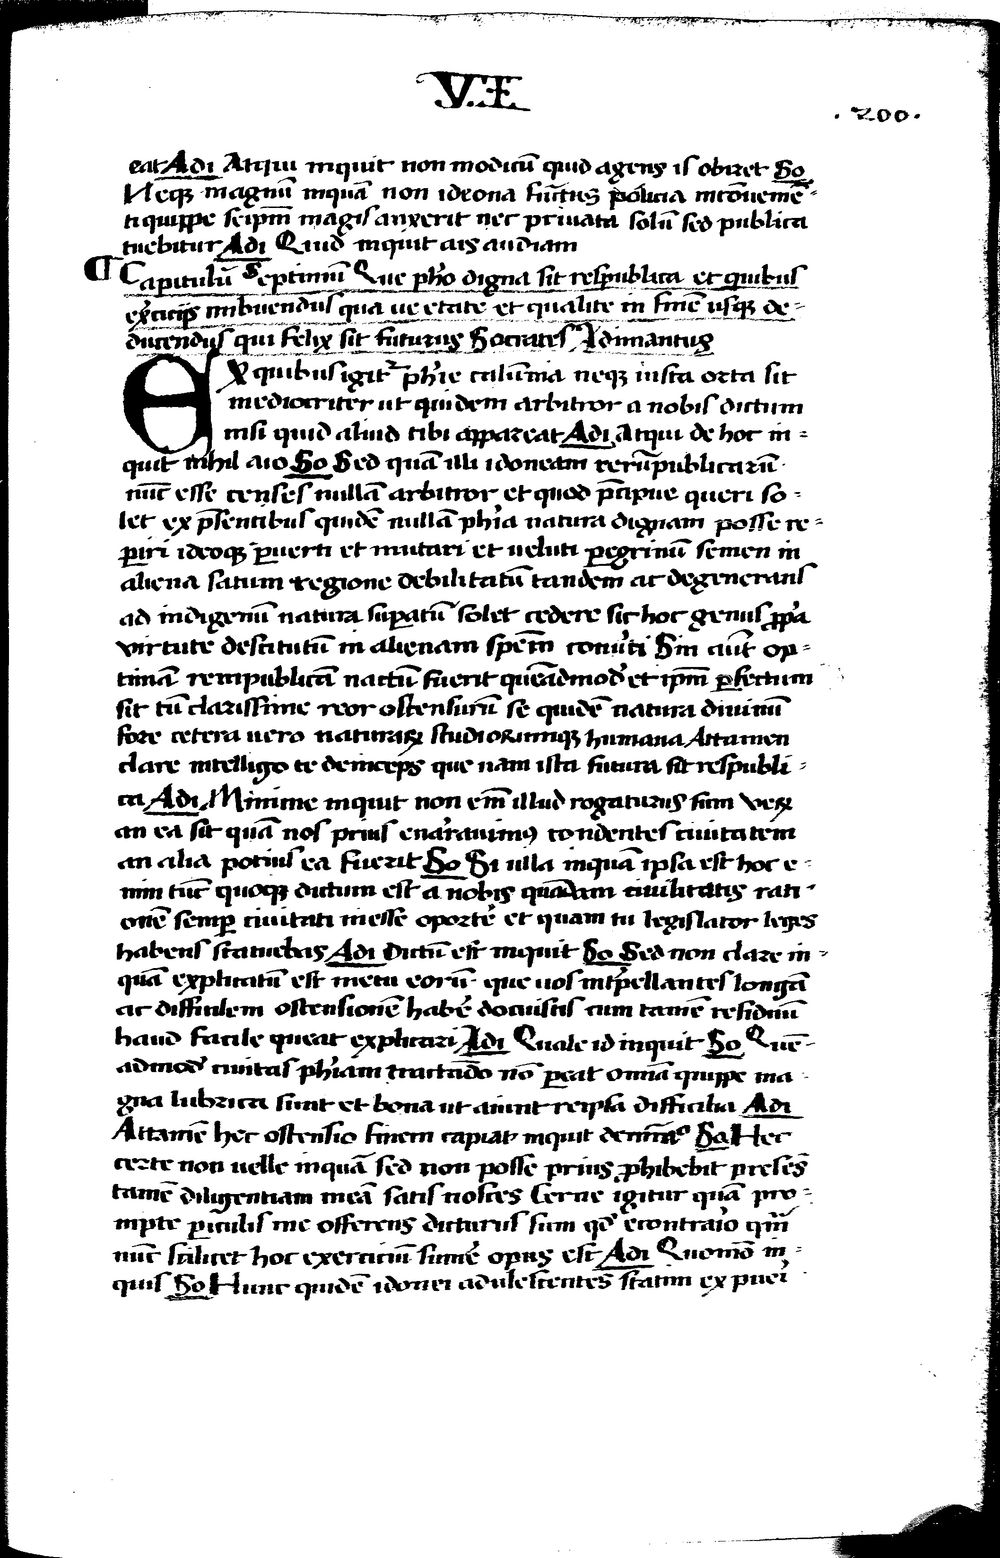 VI
.200.
eat Adi Atqui inquit non modicū quid agens is obiret So
Neqꝫ magnū inquā non ideona functus policia inconueniē-
ti quippe seipm̄ magis auxerit nec priuata solū sed publica
tuebitur Adi Quid inquit ais audiam
¶ Capitulū Septimū Que pho digna sit respublica et quibus
exercicijs imbuendus qua ue etate et qualite in finē usqꝫ de-
ducendus qui felix sit futurus Socrates Adimantus
Ex quibus igit phie calumnia neqꝫ iusta orta sit
mediocriter ut quidem arbitror a nobis dictum
nisi quid aliud tibi appareat Adi Atqui de hoc in-
quit nihil aio So Sed quā illi idoneam rerūpublicarū
nūc esse censes nullā arbitror et quod p̄cipue queri so-
let ex p̄sentibus quidē nullā phia natura dignam posse re-
ꝑiri ideoqꝫ ꝑuerti et mutari et ueluti ꝑegrinū semen in
aliena satum regione debilitatū tandem ac degenerans
ad indigenū natura suꝑatū solet cedere sic hoc genus ꝓpa
virtute destitutū in alienam spēm conuti Sin aūt op-
timā rempublicā nactū fuerit queādmod et ipm̄ ꝑfectum
sit tū clarissime reor ostensurū se quidē natura diuinū
fore cetera uero naturaꝝ studiorumqꝫ humana Attamen
clare intelligo te deinceps que nam ista futura sit respubli-
ca Adi Minime inquit non em̄ illud rogaturus sum veꝝ
an ea sit quā nos prius enarauimꝰ condentes ciuitatem
an alia potius ea fuerit So Si illa inquā ipsa est hoc e-
nim tūc quoqꝫ dictum est a nobis quādam ciuilitatis rati-
onē semꝑ ciuitati inesse oportē et quam tu legislator leges
habens statuebas Adi Dictū est inquit So Sed non clare in-
quā explicatū est metu eorū que uos intꝑellantes longā
ac difficilem ostensionē habē docuistis cum tamē residuū
haud facile queat explicari Adi Quale id inquit So Quē-
admod ciuitas phiam tractādo nō ꝑeat omīa quippe ma-
gna lubrica sunt et bona ut aiunt reipsa difficilia Adi
Attamē hec ostensio finem capiat inquit So Hec
certe non uelle inquā sed non posse prius ꝓhibebit presēs
tamē diligentiam meā satis nosces Cerne igitur quā pro-
mpte ꝑiculis me offerens dicturus sum qd econtraio qm̄
nūc scilicet hoc exerciciū sumē opus est Adi Quomō in-
quis So Hunc quidē idonei adulescentes statim ex pueri